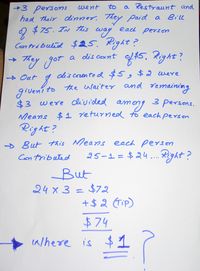 →3 persons went to a Restraunt and
had their dinner. They paid a Bill
of $75. In this way each person
Contributed $25. Right?
→ They got a discount of $5. Right?
→ Out of discounted $5, $2 were
given to the waiter and remaining
$3 were divided among 3 Persons.
Means $1 returned to each person
Right?
→ But this Means each Person
Contributed 25-1 = $24,... Right?
But
24 x 3 = $72
+$2 (TIP)
$74
→ Where is $1 ?